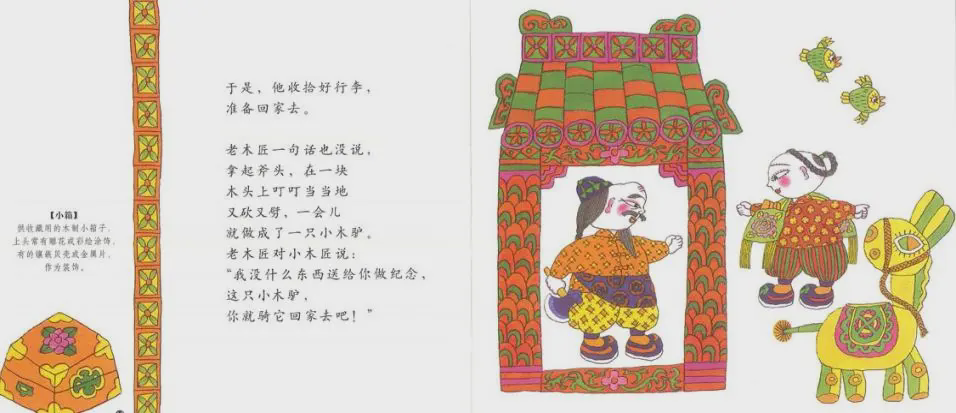 【小箱】
供收藏用的木制小箱子，
上头常有雕花或彩绘涂饰，
有的镶嵌贝壳或金属片，
作为装饰。
于是，他收拾好行李，
准备回家去。
老木匠一句话也没说，
拿起斧头，在一块
木头上叮叮当当地
又砍又劈，一会儿
就做成了一只小木驴。
老木匠对小木匠说：
“我没什么东西送给你做纪念，
这只小木驴，
你就骑它回家去吧！”